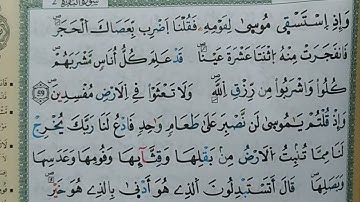 وَإِذِ اِسْتَسْقىٰ مُوسىٰ لِقَوْمِهٖ فَقُلْنَا اَضْرِب بِّعَصَاكَ اَلْحَجَرَ
فَانفَجَرَتْ مِنْهُ اُثْنَتَا عَشْرَةَ عَيْناً قَدْ عَلِمَ كُلُّ أُنَاسٍ مَّشْرَبَهُمْ
كُلُوا وَاشْرَبُوا مِن رِّزْقِ اِللَّهِ وَلَا تَعْثَوْا فِي اِلَارْضِ مُفْسِدِينَ ٥٩
وَإِذْ قُلْتُمْ يَامُوسىٰ لَن نَّصْبِرَ عَلىٰ طَعَامٍ وَاحِدٍ فَادْعُ لَنَا رَبَّكَ يُخْرِجْ
لَنَا مِمَّا تُنْبِتُ اُلَارْضُ مِنْ بَقْلِهَا وَقِثَّآئِهَا وَفُومِهَا وَعَدَسِهَا
وَبَصَلِهَا قَالَ أَتَسْتَبْدِلُونَ اَلذِے هُوَ أَدْنىٰ بِالذِے هُوَ خَيْرٌ